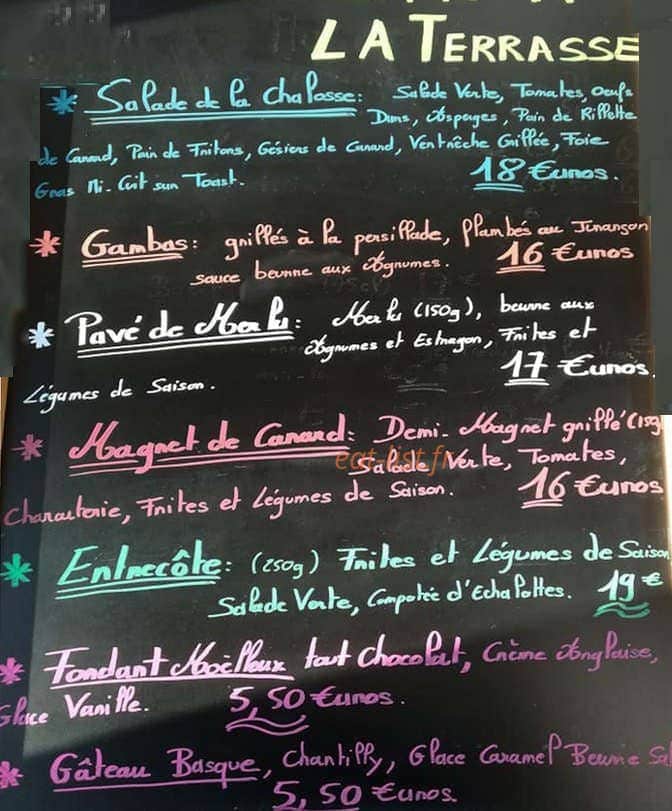 LA TERRASSE
* Salade de la Chalosse: Salade Verte, Tomates, Oeufs
Durs, Asperges, Pain de Rillette
de Canard, Pain de Fritons, Gésiers de Canard, Ventrêche Grillée, Foie
Gras Mi-Cuit sur Toast. 18 €uros.
* Gambas: grillés à la persillade, flambés au Jurançon
sauce beurre aux Agrumes. 16 €uros
* Pavé de Merlu: Merlu (150g), beurre aux
Agrumes et Estragon, Frites et
Légumes de Saison. 17 €uros.
* Magret de Canard: Demi-Magret grillé (150g
Salade Verte, Tomates,
Charcuterie, Frites et Légumes de Saison. 16 €uros
eat-list.fr
* Entrecôte: (250g) Frites et Légumes de Saison
Salade Verte, Compotée d'Echalottes. 19 €
* Fondant Moëlleux tout chocolat, Crème Anglaise,
Glace Vanille. 5,50 €uros.
* Gâteau Basque, Chantilly, Glace Caramel Beurre Sa
5,50 €uros